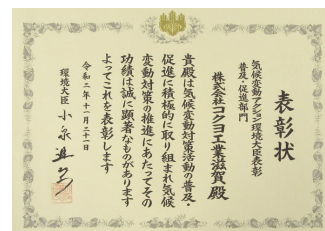 表彰状
気候変動アクション環境大臣表彰
普及・促進部門
株式会社コクヨ工業滋賀 殿
貴殿は気候変動対策活動の普及・
促進に積極的に取り組まれ気候
変動対策の推進にあたってその
功績は誠に顕著なものがあります
よってこれを表彰します
令和二年十一月二十一日
環境大臣 小泉進